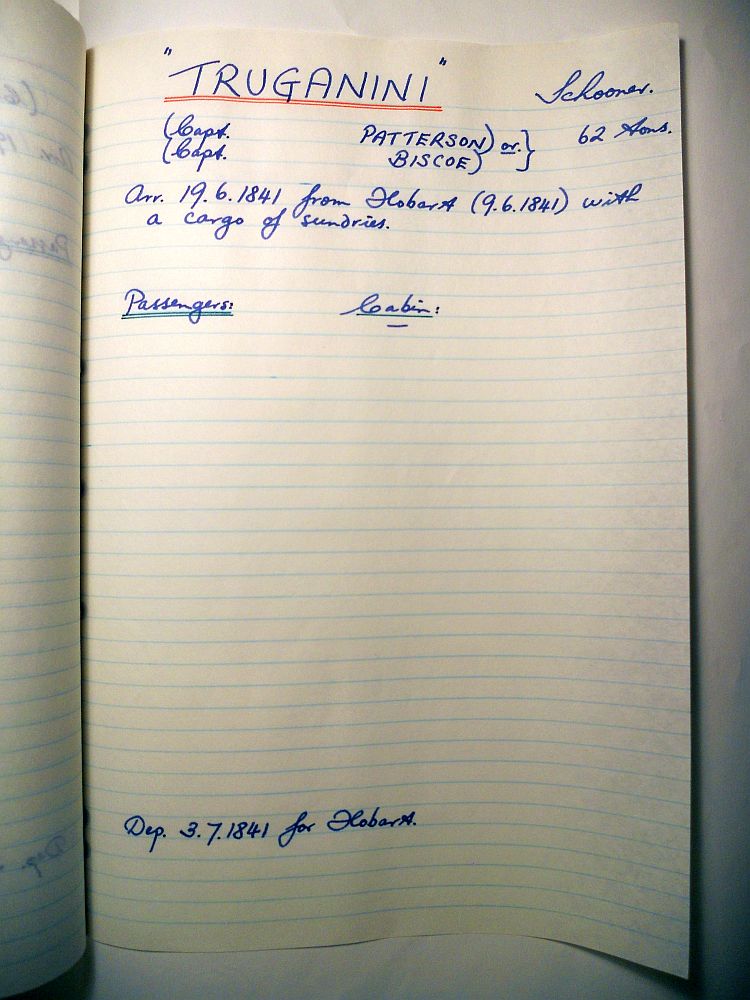 "TRUGANINI" Schooner.
(Capt. PATTERSON) or } 62 tons.
(Capt. BISCOE)
Arr. 19.6.1841 from Hobart (9.6.1841) with
a cargo of sundries.
Passengers: Cabin:
—
Dep. 3.7.1841 for Hobart.